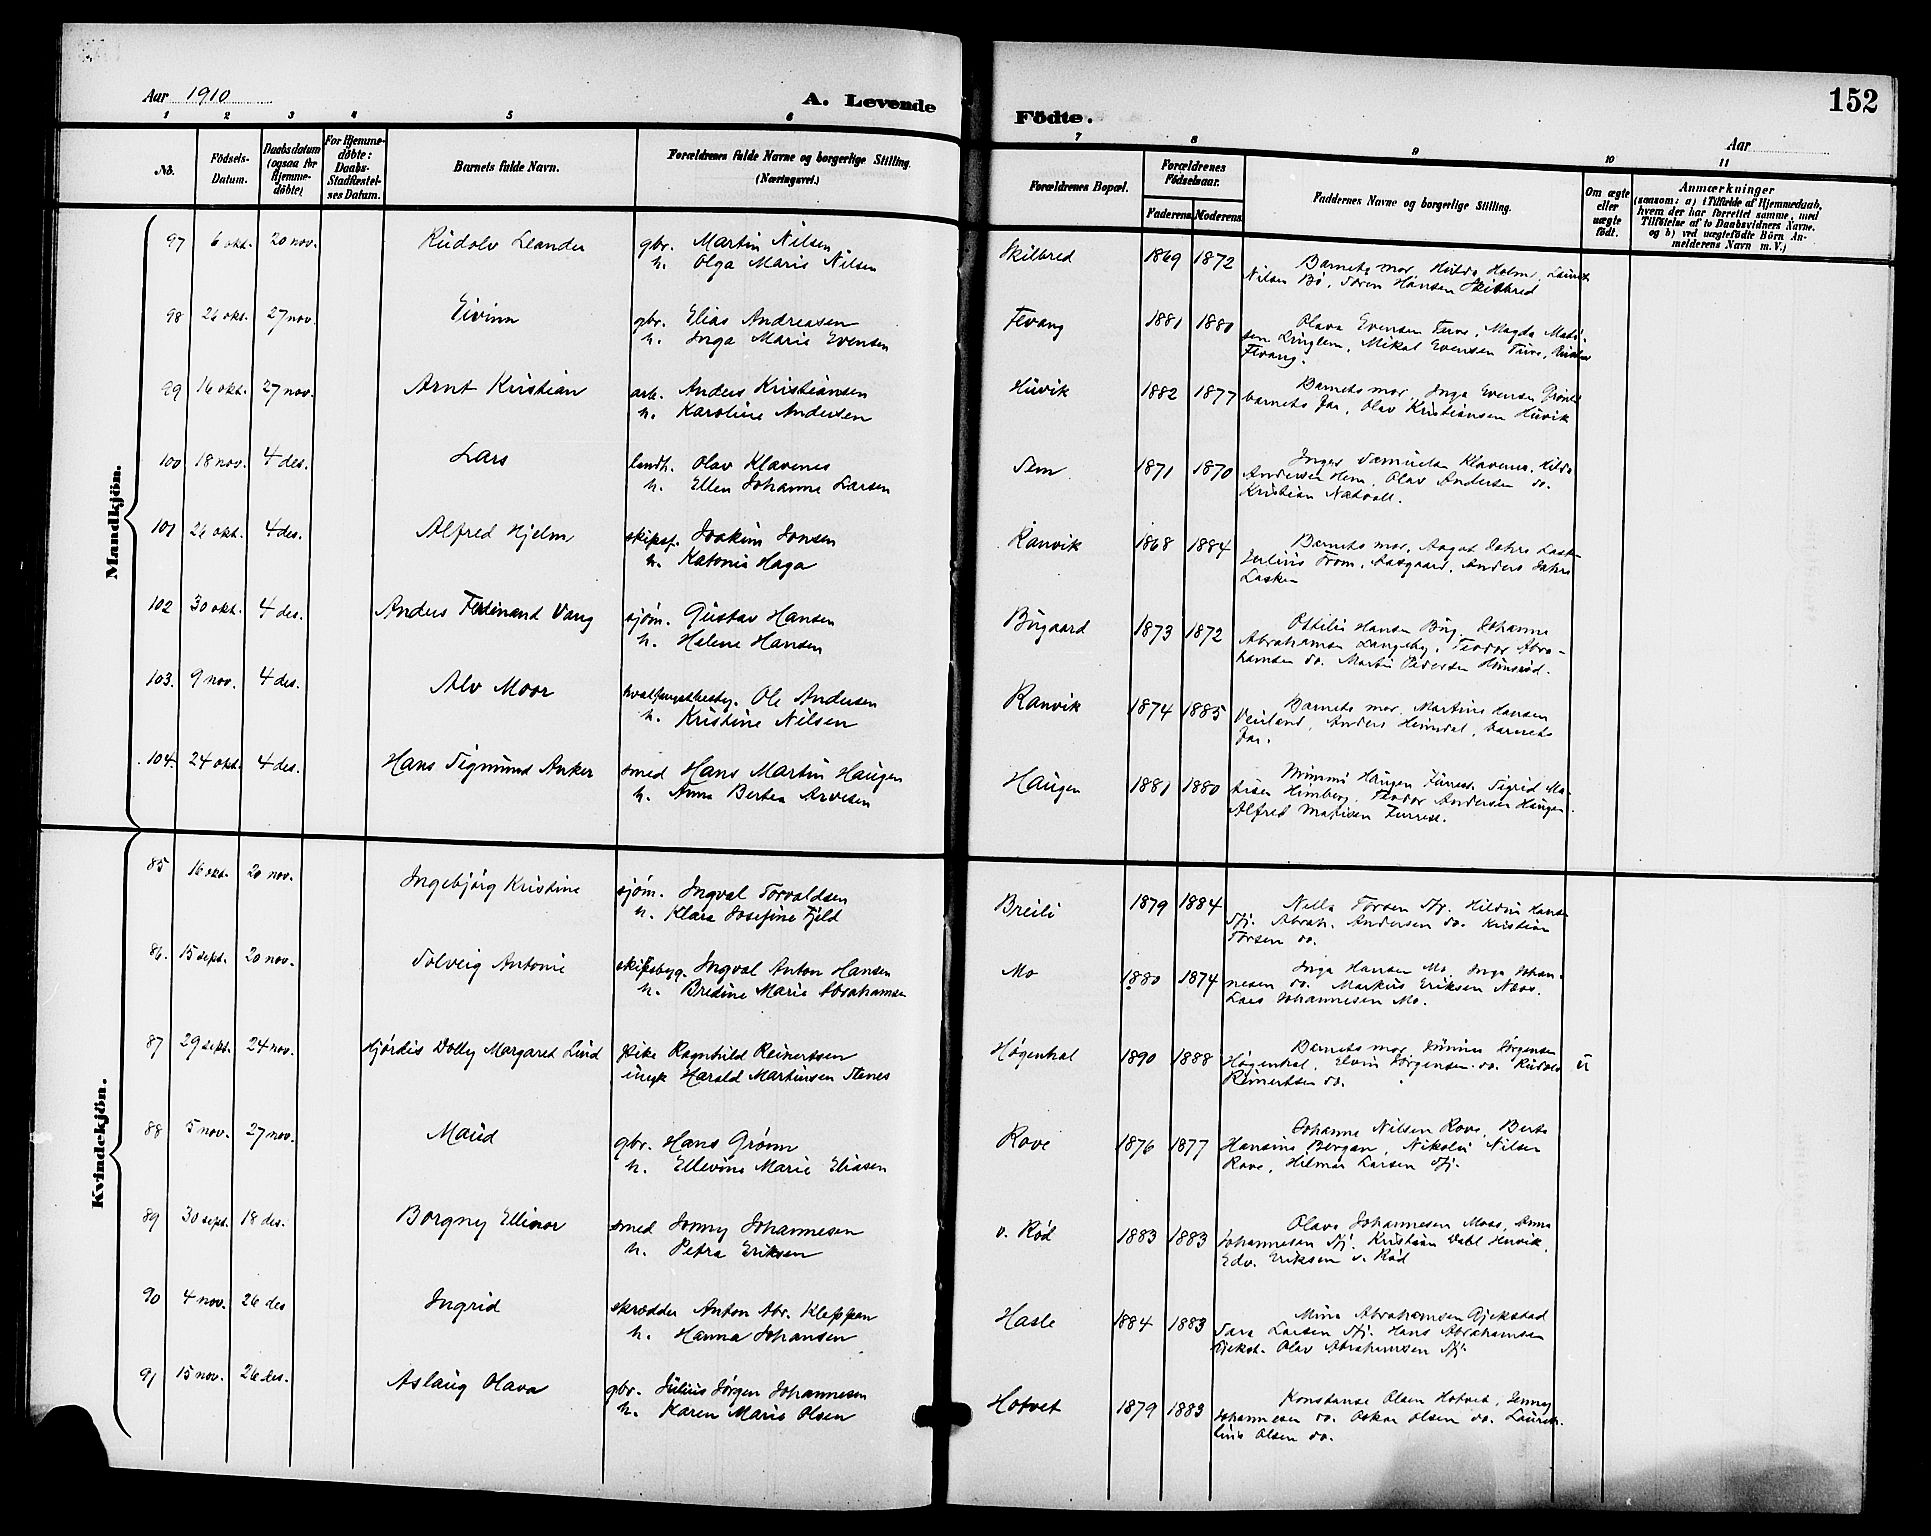 Aar 1910
A. Levende
Födte.
Aar
152
1 2 3 4 5 6 7 8 9 10 11
No.
Födsels-
Datum.
Daabsdatum
(ogsaa for
Hjemme-
döbte)
For Hjemme-
döbte:
Daabs-
Stadfæstel-
ses Datum.
Barnets fulde Navn.
Forældrenes fulde Navne og borgerlige Stilling.
(Næringsvei.)
Forældrenes Bopæl.
Forældrenes
Födselsaar.
Faderens. Moderens.
Faddernes Navne og borgerlige Stilling.
Om ægte
eller
uægte
födt.
Anmærkninger
(saasom: a) i Tilfælde af Hjemmedaab,
hvem der har forrettet samme, med
Tilföielse af to Daabsvidners Navne.
og b) ved uægtefödte Börn An-
melderens Navn m. V.)
Mandkjön.
97 6 okt. 20 nov. Rudolv Leander gbr. Martin Nilsen Skilbred 1869 1872 Barnets mor, Hulda Holm, Laurits
h. Olga Marie Nilsen Nilsen Bø, Søren Hansen Skilbred
98 26 okt. 27 nov. Eivinn gbr. Elias Andreasen Fevang 1881 1880 Olava Evensen, Magda
h. Inga Marie Evensen Mikal Evensen
Fevang.
99 16 okt. 27 nov. Arnt Kristian arb. Anders Kristiansen Huvik 1882 1877 Barnets mor, Inga Evensen
h. Karoline Andersen barnets far, Olav Kristiansen Huvik
100 18 nov. 4 des. Lars landh. Olav Klavenes Sem 1871 1870 Inger Samuelsen Klavenes, Hilda
h. Ellen Johanne Larsen Andersen Hem, Olav Andersen do.
Kristian
101 26 okt. 4 des. Alfred Hjelm skipsf. Joakim Jonsen Ranvik 1868 1884 Barnets mor, Aagot Jahre Lasken
h. Katonie Haga Julius From, Aasgaard, Anders Jahre
Lasken
102 30 okt. 4 des. Anders Ferdinand Vang sjøm. Gustav Hansen Bugaard 1873 1872 Ottilie Hansen Bug, Johanne
h. Helene Hansen Abrahamsen Langeby, Teodor Abra-
hamsen do. Martin Pedersen
103. 9 nov. 4 des. Alv Moor hvalfangstbesty. Ole Andersen Ranvik 1874 1885 Barnets mor, Martine Hansen
h. Kristine Nilsen Veirland, Anders Heimdal, barnets
far.
104. 24 okt. 4 des. Hans Sigmund Anker smed Hans Martin Haugen Haugen 1881 1880 Mimmi Haugen Furrest, Sigrid Ma-
h. Anna Bertea Arvesen tisen Himberg, Teodor Andersen Haugen.
Alfred Matisen Furrest.
Kvindekjön.
85 16 okt. 20 nov. Ingebjørg Kristine sjøm. Ingval Torvaldsen Breili 1879 1884 Nella Torsen Sfj. Hildur Hansen
h. Klara Josefine Fjeld Sfj. Abrah. Andersen do. Kristian
Torsen do.
86. 15 sept. 20 nov. Solveig Antonie skibsbyg. Ingval Anton Hansen Mo 1880 1874 Inga Hansen Mo, Inga Johan-
h. Bredine Marie Abrahamsen nesen do. Markus Eriksen Næss.
Lars Johannesen Mo.
87 29 sept. 24 nov. Hjørdis Dolly Margaret Lind pike Ragnhild Reinertsen Høgenhal 1890 1888 Barnets mor, Jørgensen u
ungk Harald Martinsen Stenes Høgenhal, Elvin Jørgensen do. Rudolv
Reinertsen do.
88 5 nov. 27 nov. Maud gbr. Hans Grønn Rove 1876 1877 Johanne Nilsen Rove, Berte
h. Ellevine Marie Eliasen Hansine Bergan, Nikolai Nilsen
Rove, Hilmar Larsen Sfj.
89 30 sept. 18 des. Borgny Ellinor smed Jonny Johannesen v. Rød 1883 1883 Olava Johannesen Moss, Anna
h. Petra Eriksen Johannesen Sfj. Kristian Dahl Huvik,
Edv. Eriksen v. Rød
90 4 nov. 26 des Ingrid skrædder Anton Abr. Kleppan Hasle 1884 1883 Mina Abrahamsen Gjekstad
h. Hanna Johansen Sara Larsen Sfj. Hans Abrahamsen
Gjekst. Olav Abrahamsen Sfj.
91 15 nov. 26 des. Aslaug Olava gbr. Julius Jørgen Johannesen Hotvet 1879 1883 Konstanse Olsen Hotvet, Jenny
h. Karen Marie Olsen Johannesen do. Oskar Olsen do. Lauren-
tius Olsen do.